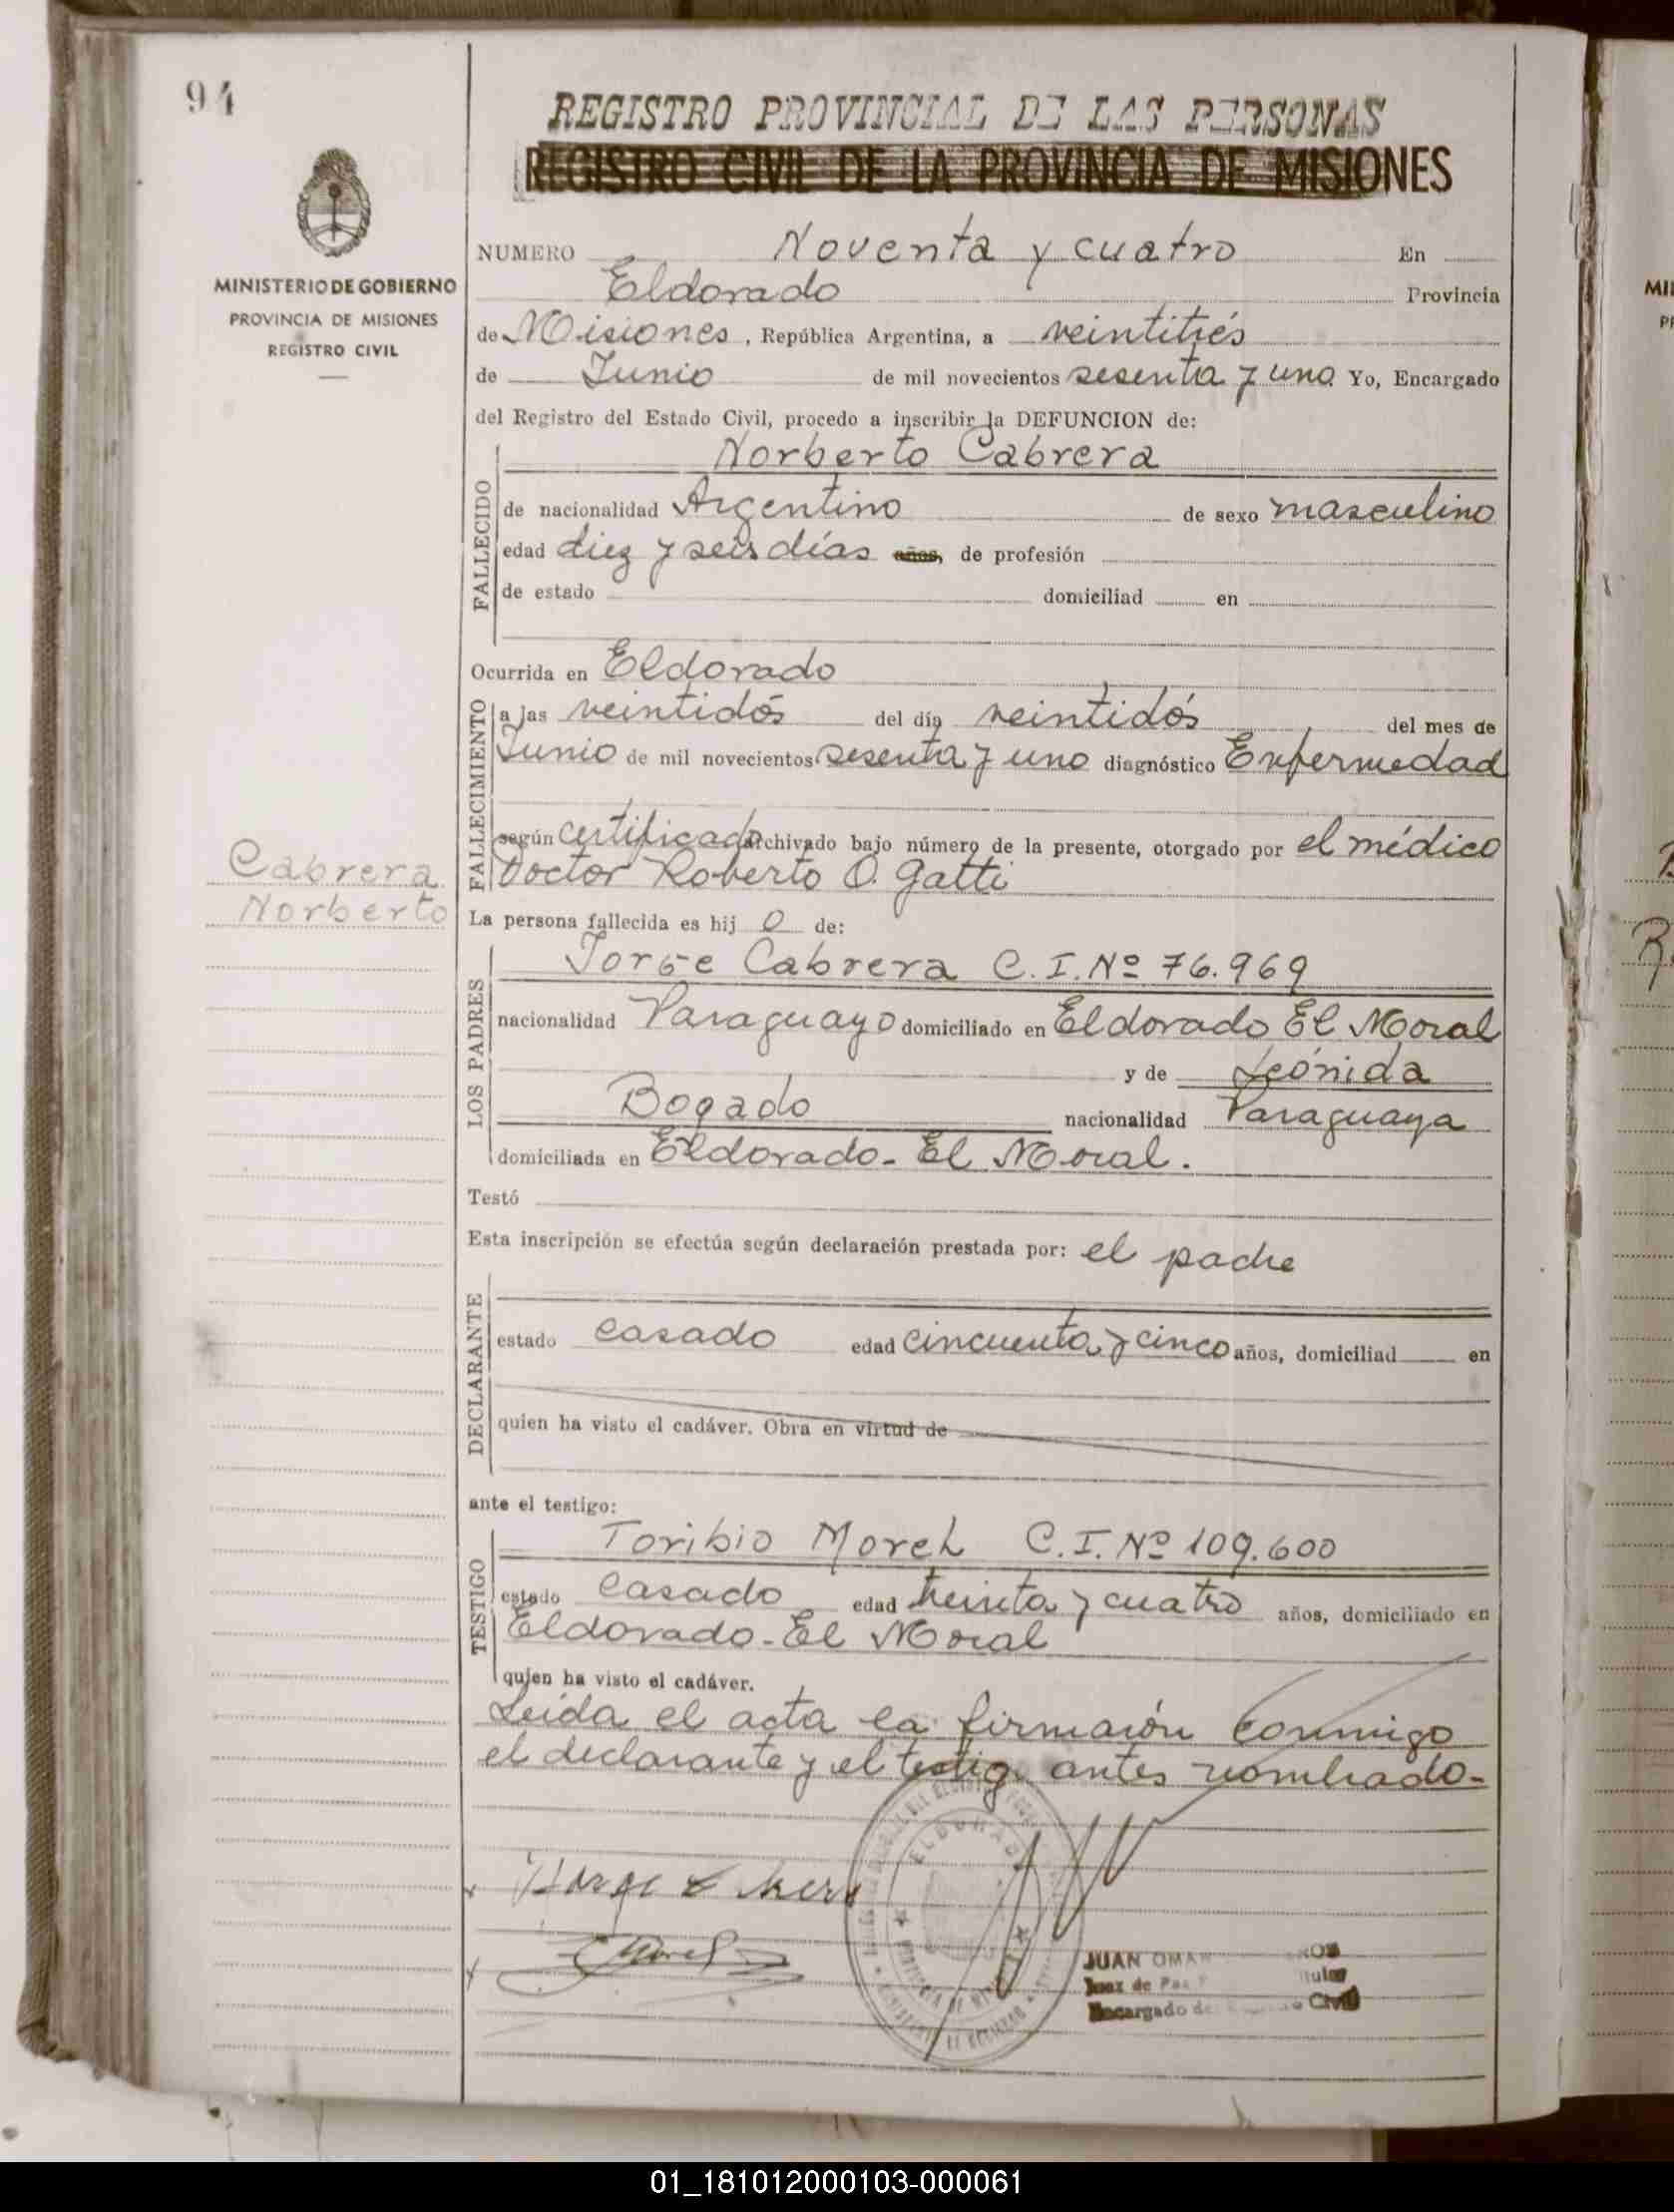 94
REGISTRO PROVINCIAL DE LAS PERSONAS
REGISTRO CIVIL DE LA PROVINCIA DE MISIONES
MINISTERIO DE GOBIERNO
PROVINCIA DE MISIONES
REGISTRO CIVIL
NUMERO Noventa y cuatro En
Eldorado Provincia
de Misiones, República Argentina, a veintitrés
de Junio de mil novecientos sesenta y uno. Yo, Encargado
del Registro del Estado Civil, procedo a inscribir la DEFUNCION de:
Norberto Cabrera
FALLECIDO
de nacionalidad Argentino de sexo masculino
edad diez y seis días años, de profesión
de estado domiciliad en
Ocurrida en Eldorado
FALLECIMIENTO
a las veintidós del día veintidós del mes de
Junio de mil novecientos sesenta y uno diagnóstico Enfermedad
según certificado archivado bajo número de la presente, otorgado por el médico
Doctor Roberto O. Gatti
Cabrera
Norberto
La persona fallecida es hij o de:
Jorge Cabrera C.I.Nº 76.969
LOS PADRES
nacionalidad Paraguayo domiciliado en Eldorado El Moral
y de Leónida
Bogado nacionalidad Paraguaya
domiciliada en Eldorado - El Moral.
Testó
Esta inscripción se efectúa según declaración prestada por: el padre
DECLARANTE
estado casado edad cincuenta y cinco años, domiciliad en
quien ha visto el cadáver. Obra en virtud de
ante el testigo:
Toribio Morel C.I.Nº 109.600
TESTIGO
estado casado edad treinta y cuatro años, domiciliado en
Eldorado - El Moral
quien ha visto el cadáver.
Leída el acta la firmarón conmigo
el declarante y el testigo antes nombrado.
ELDORADO
JUAN OMAR
Juez de Paz
Encargado de Civil
01_181012000103-000061